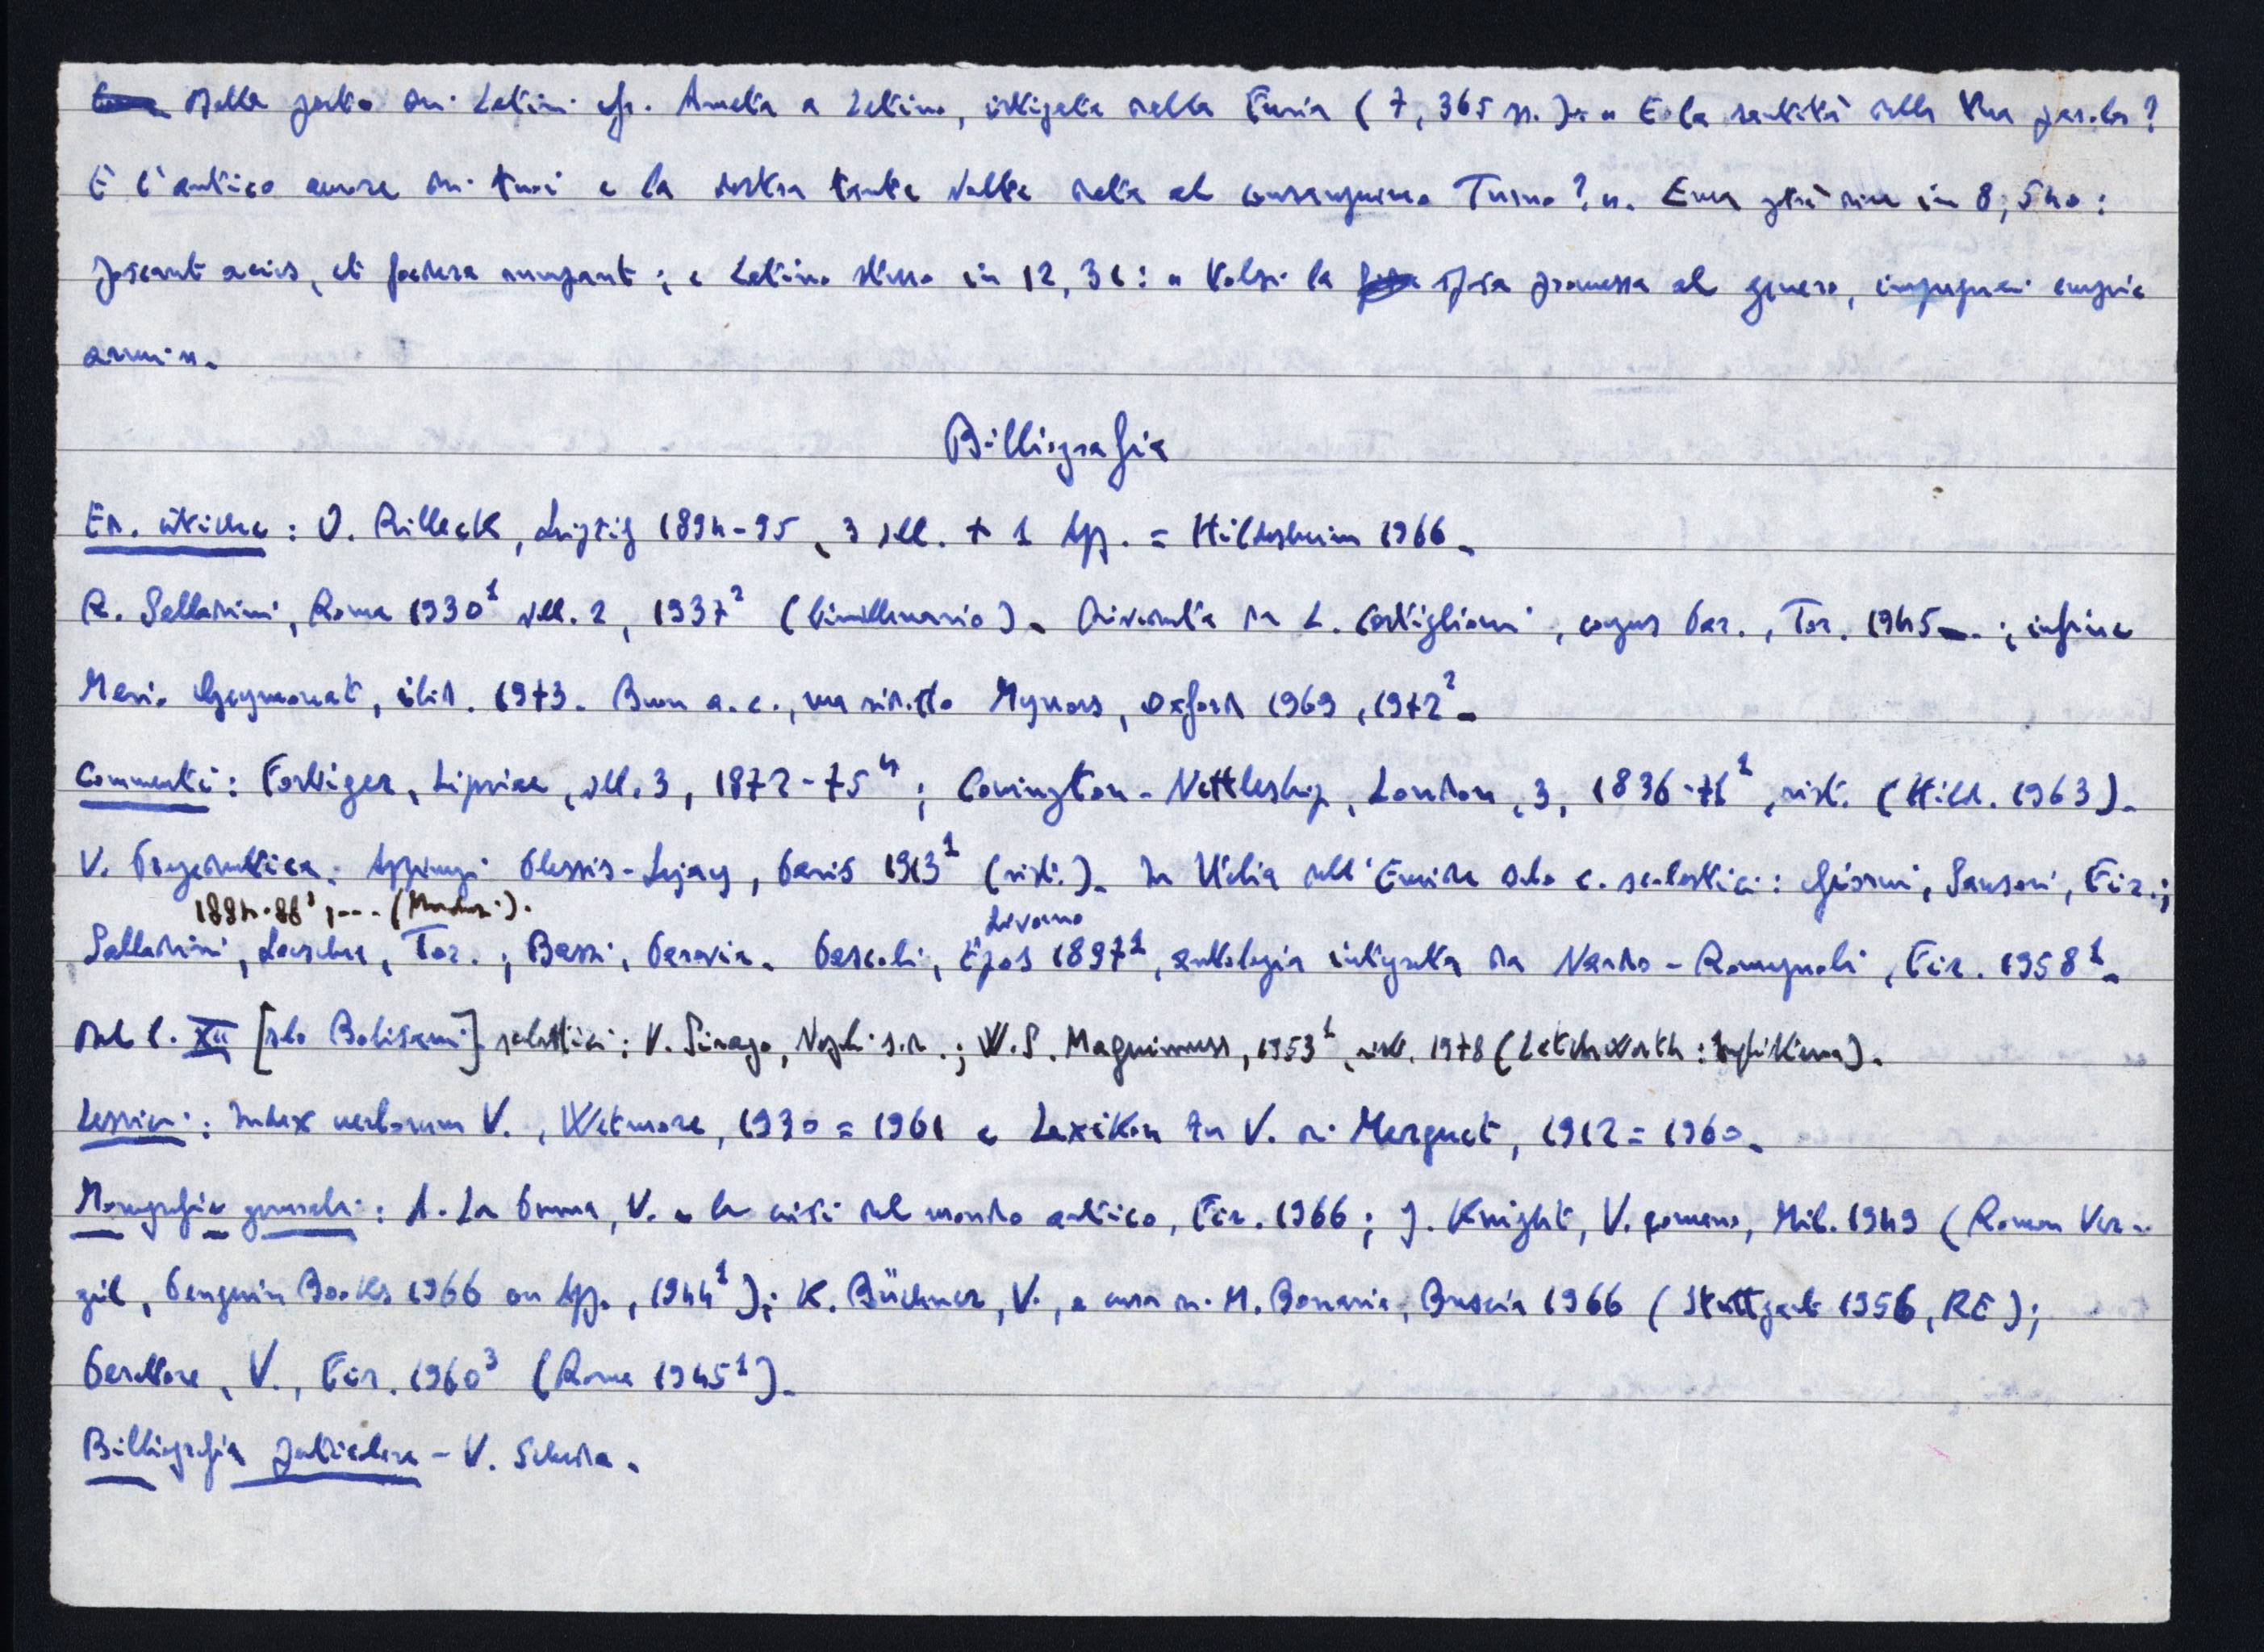 Dalla parte dei Latini cfr. Amata a Latino, istigata dalla Furia (7, 365 ss.): « E la santità della tua parola?
E l'antico amore dei tuoi e la destra tante volte data al consanguineo Turno? ». Enea potrà dire in 8, 540:
poscant acies, et foedera rumpant; e Latino stesso in 12, 31: « Tolsi la sposa promessa al genero, impugnai empie
armi ».
Bibliografia
Ed. critiche: O. Ribbeck, Leipzig 1894-95, 3 voll. + 1 App. = Hildesheim 1966.
R. Sabbadini, Roma 1930¹ voll. 2, 1937² (bimillenario). Riveduta da L. Castiglioni, corpus Par., Tor. 1945.; infine
Mario Geymonat, ibid. 1973. Buon a. c., ma ridotto Mynors, Oxford 1969, 1972².
Commenti: Forbiger, Lipsiae, voll. 3, 1872-75⁴; Conington-Nettleship, London, 3, 1836-71¹, rist. (Hild. 1963).
V. Propedeutica. Appunyi Plessis-Lejay, Paris 1913¹ (rist.). In Italia dell'Eneide solo c. scolastici: Giorni, Sansoni, Fir.;
1884-86¹, ... ( ).
Livorno
Sabbadini, Loescher, Tor.; Bassi, Paravia. Pascoli, Epos 1897¹, antologia integrata da Nardo-Romagnoli, Fir. 1958¹.
Del l. XII [solo Bolisani] scolastici: V. Sirago, Napoli s.d.; W.S. Maguinness, 1953¹, rist. 1978 (Letchworth: ).
Lessici: Index verborum V., Wetmore, 1930 = 1961 e Lexikon zu V. di Merguet, 1912 = 1960.
Monografie generali: A. La Penna, V. e la crisi del mondo antico, Fir. 1966; J. Knight, V. romano, Mil. 1949 (Roman Ver-
gil, Penguin Books 1966 con App., 1944¹); K. Büchner, V., a cura di M. Bonaria, Brescia 1966 (Stuttgart 1956, RE);
Paratore, V., Fir. 1960³ (Roma 1945¹).
Bibliografia particolare - V. Scheda.